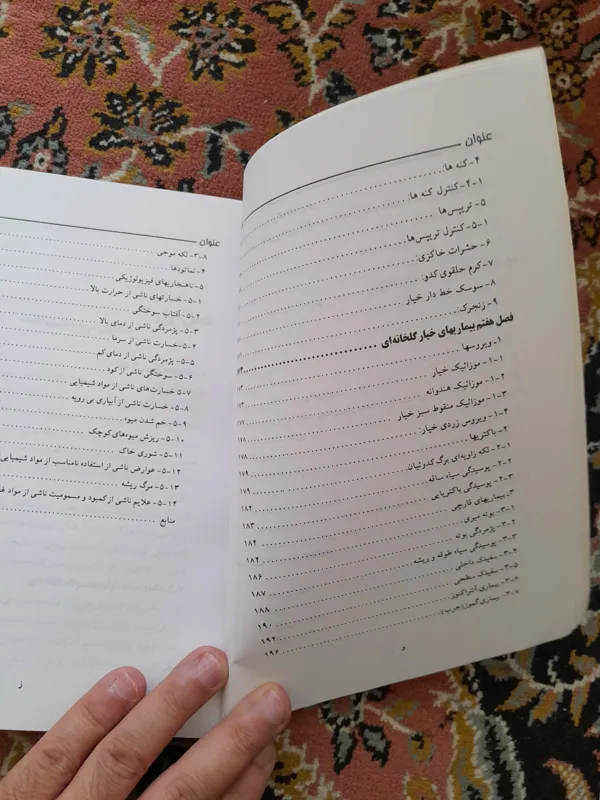 عنوان
۴- کنه ها:
۴-۱- کنترل کنه ها:
۵- تریپس‌ها
۵-۱- کنترل تریپس‌ها
۶- حشرات خاکزی:
۷- کرم حلقوی کدو:
۸- سوسک خط دار خیار
۹- زنجرک
فصل هفتم بیماریهای خیار گلخانه‌ای
۱- ویروسها
۱-۱- موزائیک خیار
۱-۲- موزائیک هندوانه
۱-۳- موزائیک منقوط سبز خیار
۱-۴- ویروس زردی خیار ۱۷۸
۲- باکتریها ۱۷۸
۲-۱- لکه زاویه‌ای برگ کدوئیان ۱۷۹
۲-۲- پوسیدگی سیاه ساقه ۱۷۹
۲-۳- پوسیدگی باکتریایی ۱۸۲
۳- بیماریهای قارچی ۱۸۳
۳-۱- بوته میری ۱۸۴
۳-۲- پژمردگی بوته ۱۸۴
۳-۳- پوسیدگی سیاه طوقه و ریشه ۱۸۶
۳-۴- سفیدک داخلی ۱۸۷
۳-۵- سفیدک سطحی ۱۸۸
۳-۶- بیماری آنتراکنوز ۱۹۰
۳-۷- بیماری گموز(جرب) ۱۹۲
۱۹۶
و
عنوان
۳-۸- لکه موجی
۴- نماتودها
۵- ناهنجاریهای فیزیولوژیکی
۵-۱- خسارتهای ناشی از حرارت بالا
۵-۲- آفتاب سوختگی
۵-۳- پژمردگی ناشی از دمای بالا
۵-۴- خسارت ناشی از سرما
۵-۵- پژمردگی ناشی از دمای کم
۵-۶- سوختگی ناشی از کود
۵-۷- خسارت‌های ناشی از مواد شیمیایی
۵-۸- خسارت ناشی از آبیاری بی رویه
۵-۹- خم شدن میوه
۵-۱۰- ریزش میوه‌های کوچک
۵-۱۱- شوری خاک
۵-۱۲- عوارض ناشی از استفاده نامناسب از مواد شیمیایی
۵-۱۳- مرگ ریشه
۵-۱۴- علایم ناشی از کمبود و مسمومیت ناشی از مواد
منابع
ز